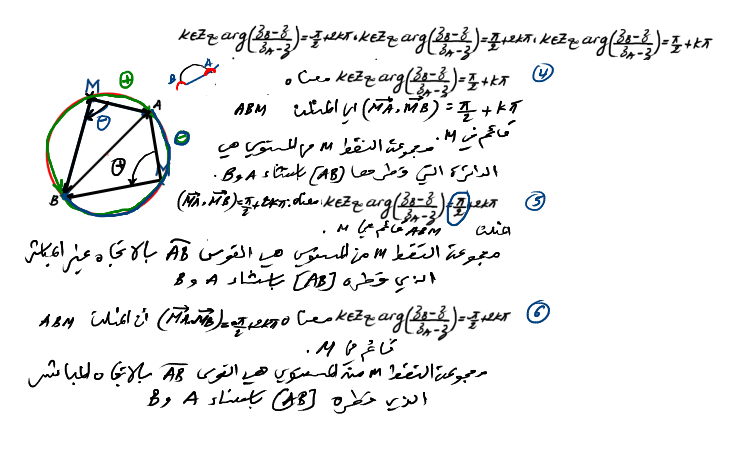 k∈Z و arg((z_B-z)/(z_A-z))=-π/2+2kπ، k∈Z و arg((z_B-z)/(z_A-z))=π/2+2kπ، k∈Z و arg((z_B-z)/(z_A-z))=π/2+kπ
④ k∈Z و arg((z_B-z)/(z_A-z))=π/2+kπ معناه
(MA, MB)=π/2+kπ اي المثلث ABM
قائم في M. مجموعة النقط M من المستوي هي
الدائرة التي قطرها [AB] باستثناء A و B.
⑤ k∈Z و arg((z_B-z)/(z_A-z))=π/2+2kπ معناه (MA, MB)=π/2+2kπ.
المثلث ABM قائم في M.
مجموعة النقط M من المستوي هي القوس AB بالاتجاه غير المباشر
الذي قطره [AB] باستثناء A و B
⑥ k∈Z و arg((z_B-z)/(z_A-z))=-π/2+2kπ معناه (MA, MB)=-π/2+2kπ ان المثلث ABM
قائم في M.
مجموعة النقط M من المستوي هي القوس AB بالاتجاه المباشر
الذي قطره [AB] باستثناء A و B
M
⊕
A
B
θ
A
⊖
⊕
M
B